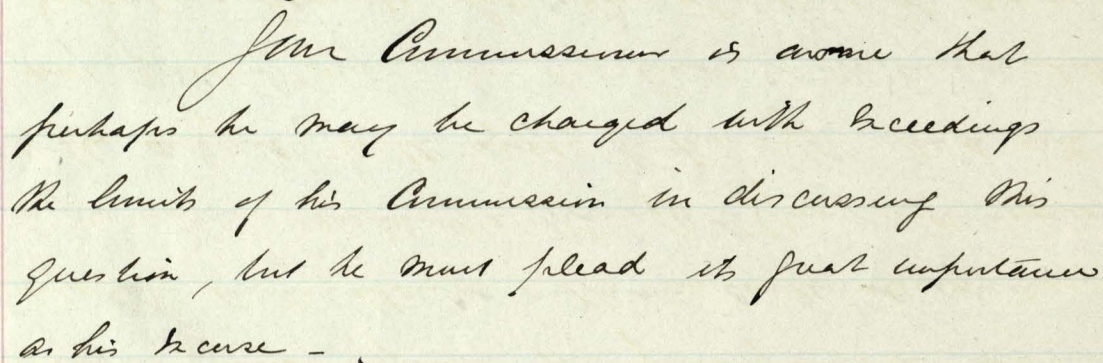 Your Commissioner is aware that
perhaps he may be charged with exceedings
the limits of his Commission in discussing this
question, but he must plead its great importance
as his excuse -